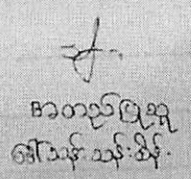 အတည်ပြုသူ
ဒေါ်သန်းသန်းစိန်